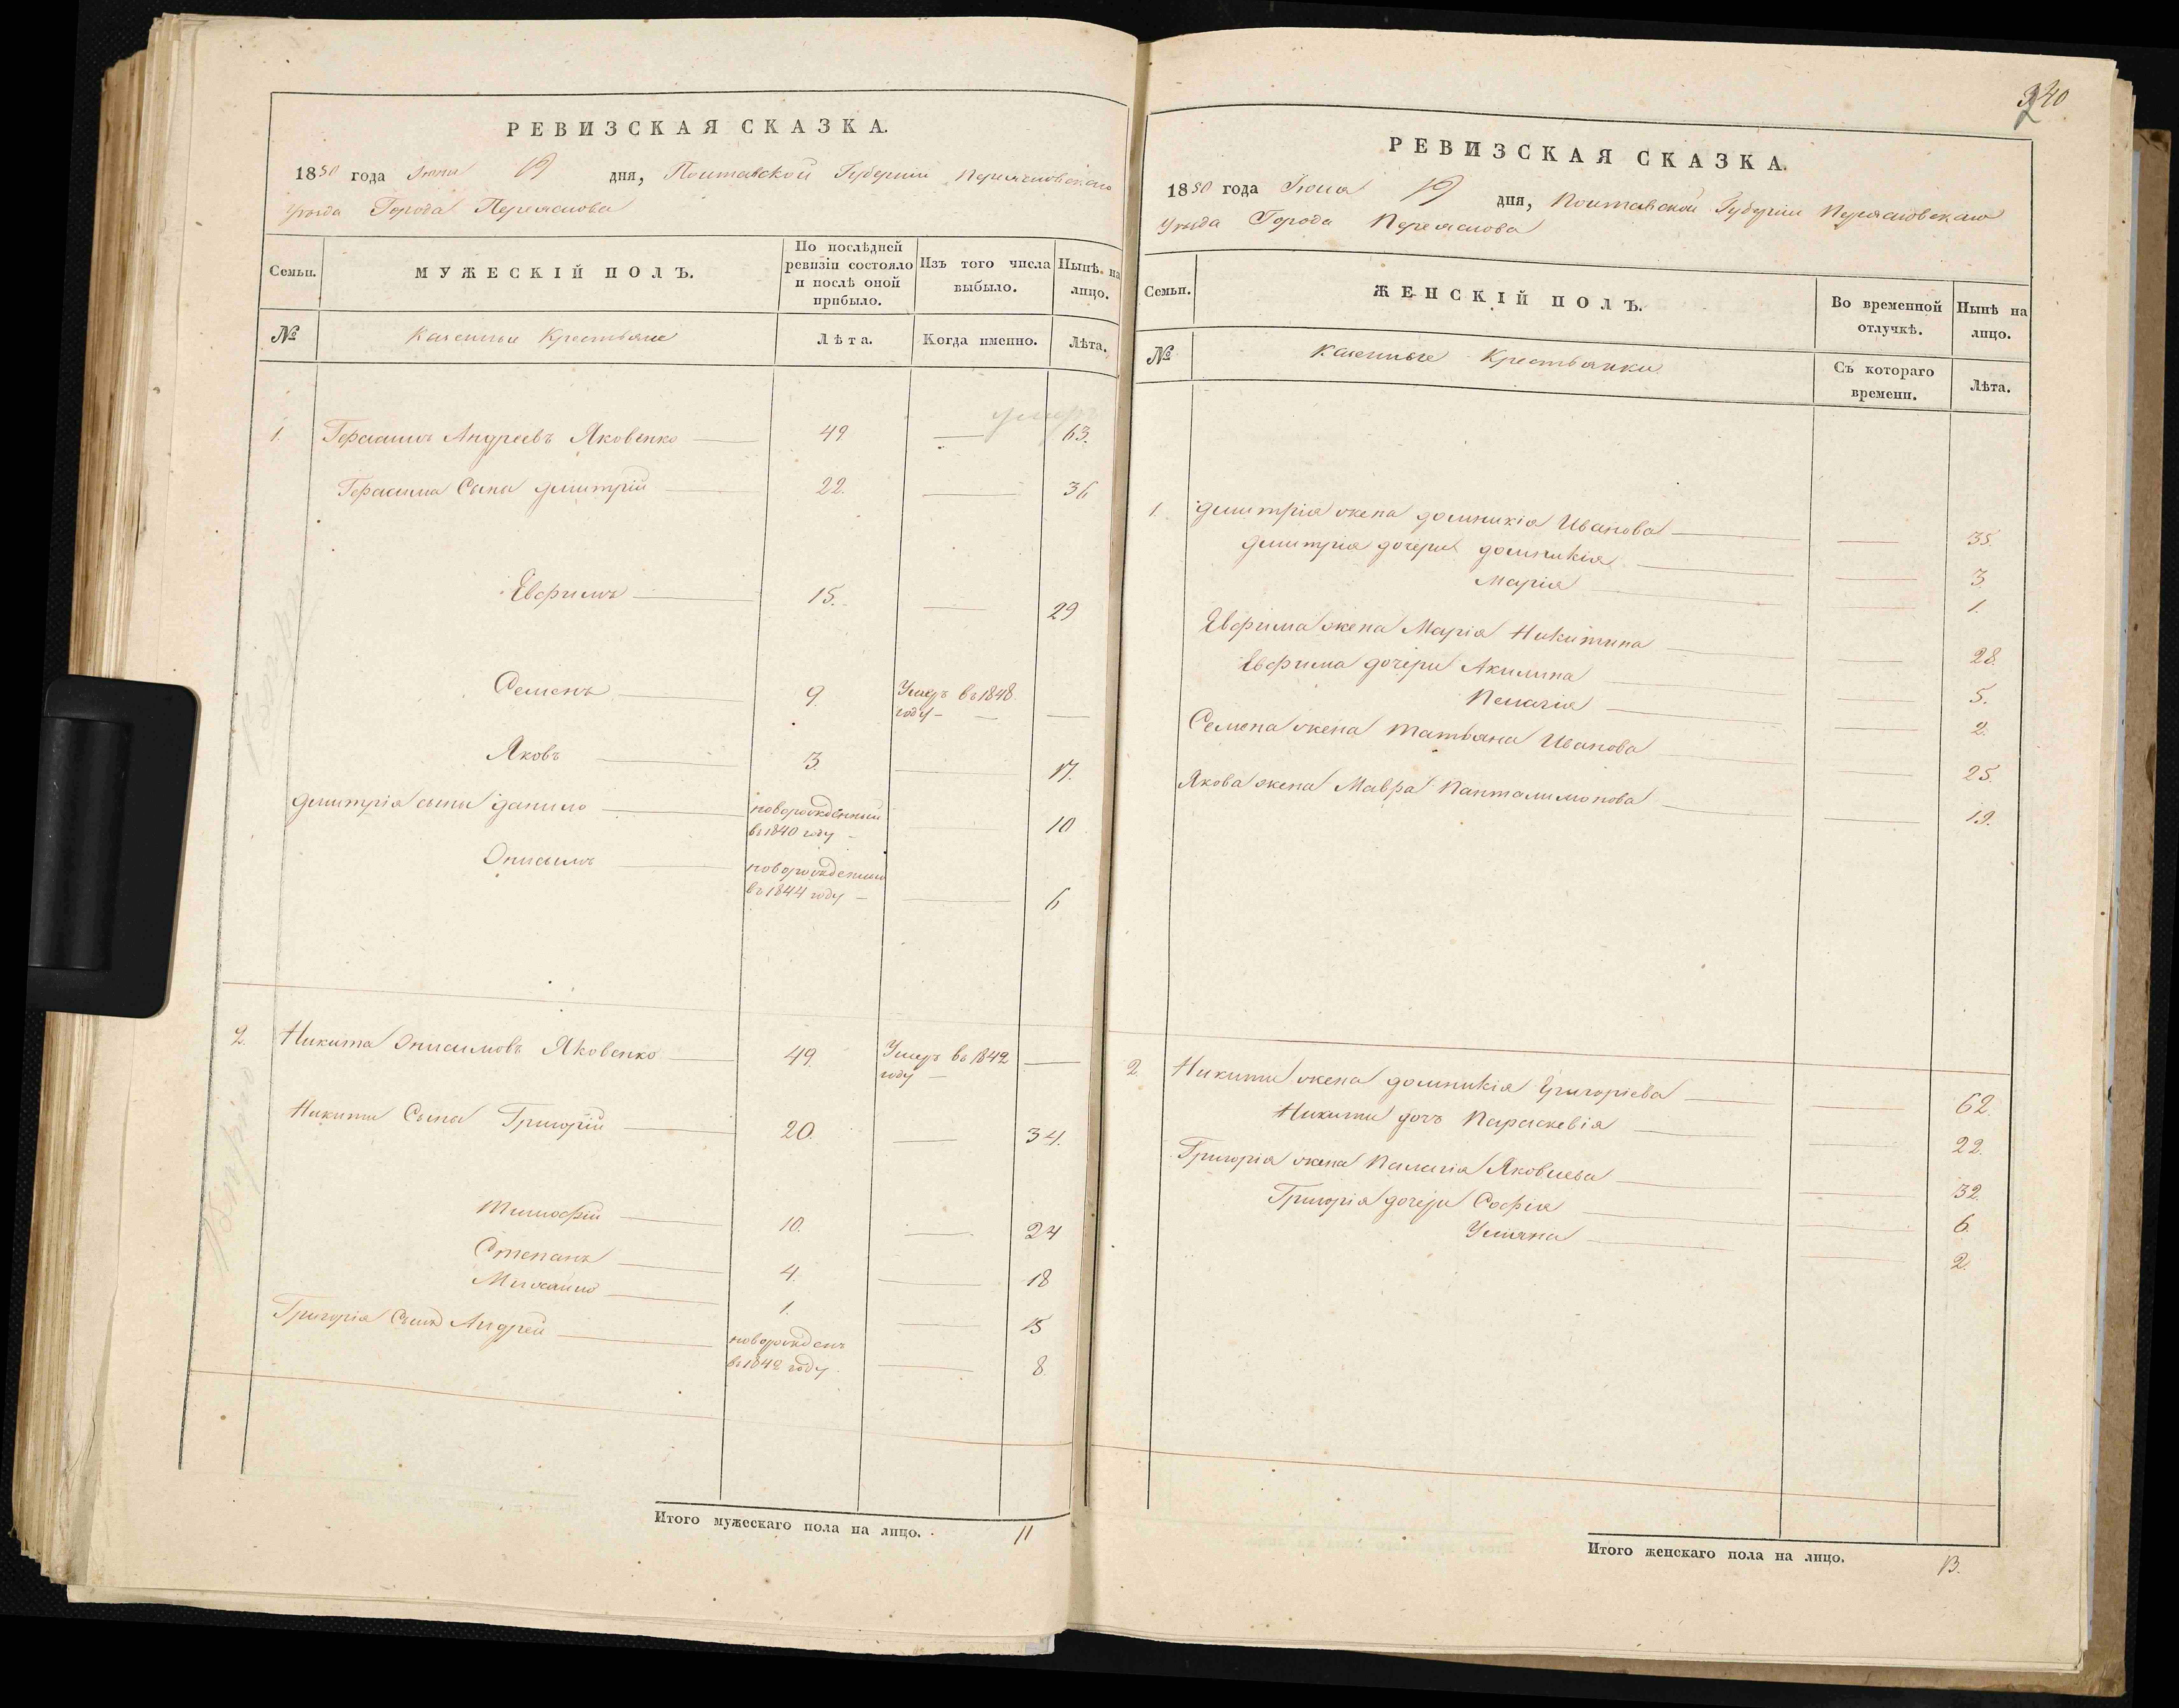 РЕВИЗСКАЯ СКАЗКА.
1850 года Іюня 19 дня, Полтавской Губерніи Переяславскаго
Уѣзда Города Переяслова
Семьи. МУЖЕСКІЙ ПОЛЪ. По послѣдней ревизіи состояло и послѣ оной прибыло. Изъ того числа выбыло. Нынѣ на лицо.
№ Казенные Крестьяне Лѣта. Когда именно. Лѣта.
умеръ
1. Герасимъ Андреевъ Яковенко 49 63.
Герасима Сыны Дмитрій 22. 36
Евфимъ 15. 29
Семенъ 9. Умеръ въ 1848
году
Яковъ 3. 17.
Дмитрія сыны Данило новорожденный 10
въ 1840 году
Онисимъ новорожденный
въ 1844 году 6
2. Никита Онисимовъ Яковенко 49. Умеръ въ 1842
году
Никиты Сыны Григорій 20. 34.
Тимофій 10. 24
Степанъ 4. 18
Михайло 1. 15
Григорія Сынъ Андрей новорожденъ
въ 1842 году 8
Итого мужескаго пола на лицо. 11
240
РЕВИЗСКАЯ СКАЗКА.
1850 года Іюня 19 дня, Полтавской Губерніи Переясловскаго
Уѣзда Города Переяслова
Семьи. ЖЕНСКІЙ ПОЛЪ. Во временной отлучкѣ. Нынѣ на лицо.
№ Казенные Крестьянки Съ котораго времени. Лѣта.
1. Дмитрія жена Домникія Иванова 35.
Дмитрія дочери Домникія 3
Марія 1.
Евфима жена Марія Никитина 28.
Евфима дочери Акилина 5.
Пелагія 2.
Семена жена Татьяна Иванова 25.
Якова жена Мавра Панталимонова 19.
2. Никиты жена Домникія Григоріева 62.
Никиты дочь Параскевія 22.
Григорія жена Палагія Яковлева 32.
Григорія дочери Софія 6.
Уліяна 2.
Итого женскаго пола на лицо. 13.